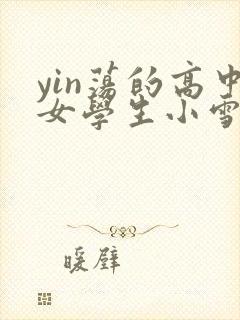 yin蕩的高中
女學生小雪
暖壁